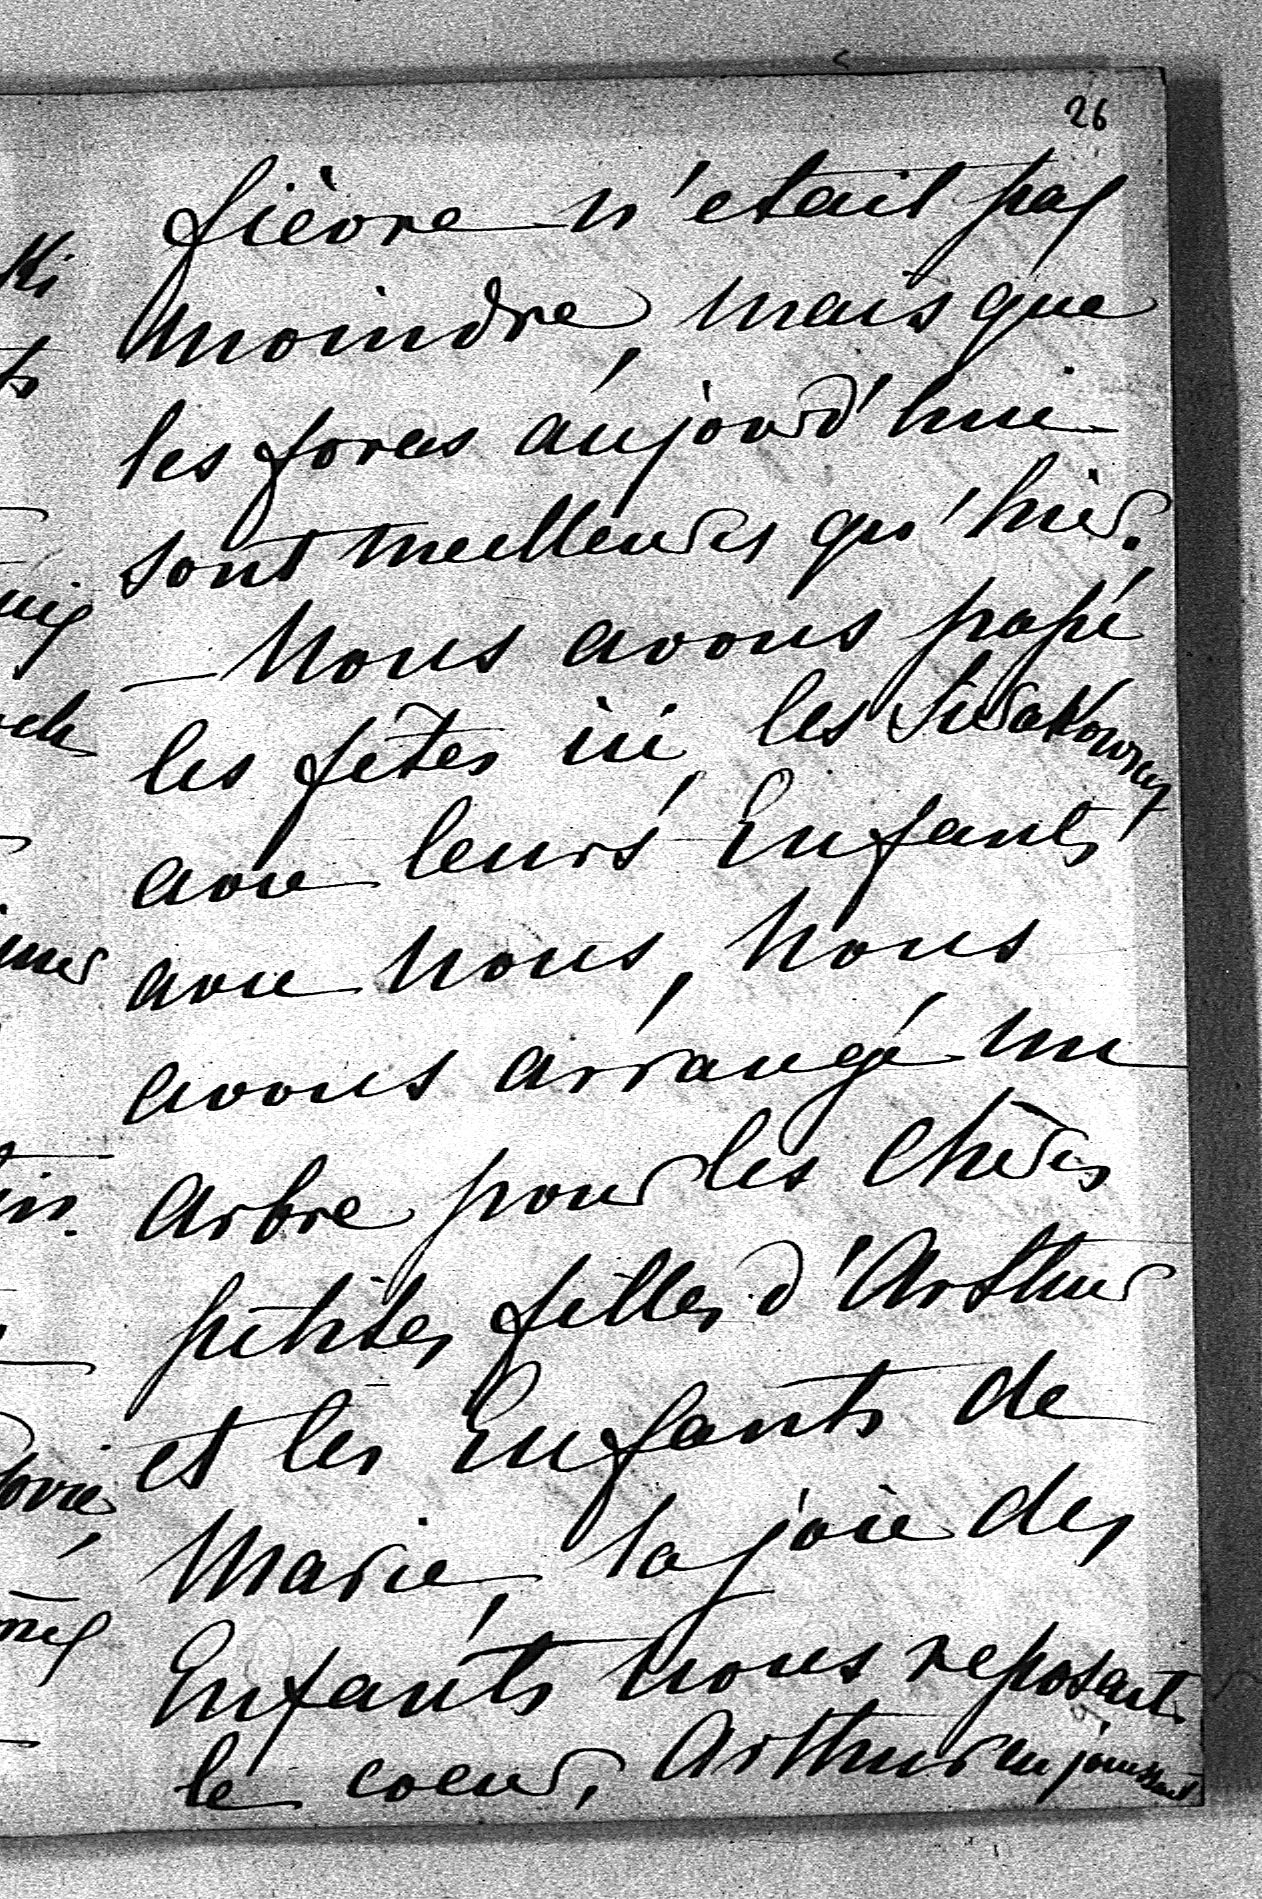 26
fièvre n'etait pas
moindre, mais que
les forces aujourd'hui
sont meilleures qu'hier.
— Nous avons passé
les fêtes ici, les
avec leurs Enfants
avec nous, nous
avons arrangé un
arbre pour les chères
petites filles d'Arthur
et les Enfants de
Marie, la joie des
Enfants nous reposant
le coeur, Arthur en jouissant